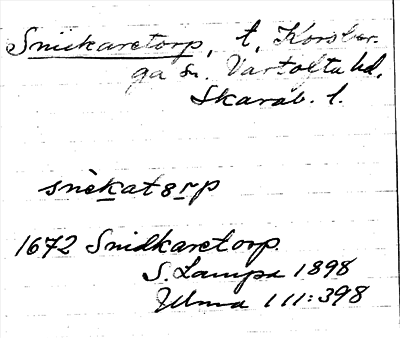 Snickaretorp, t, Korsber-
ga sn. Vartofta hd.
Skarab. l.
snèkat8rp
1672 Snidkaretorp.
S. Lampa 1898
Ulma 111:398